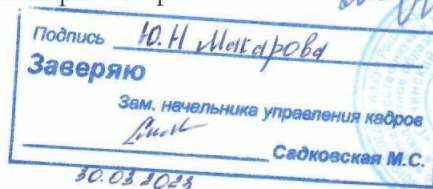 Подпись Ю.Н Макарова
Заверяю
Зам. начальника управления кадров
Садковская М.С.
30.03.2023